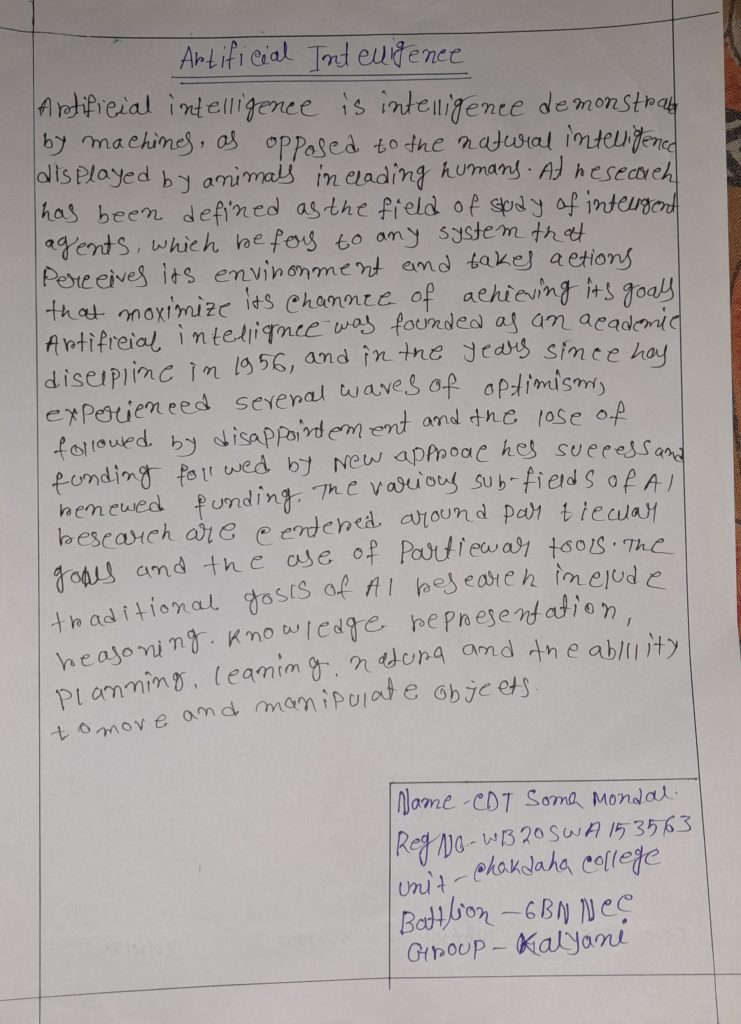 Artificial Intelligence
Artificial intelligence is intelligence demonstrate
by machines, as opposed to the natural intelligence
displayed by animals including humans. AI research
has been defined as the field of study of intelligent
agents, which refers to any system that
Perceives its environment and takes actions
that moximize its channce of achieving its goals
Artificial intellignce was founded as an academic
discipline in 1956, and in the years since has
experienced several waves of optimism,
followed by disappointement and the lose of
funding foll wed by New approac hes success and
renewed funding. The various sub-fields of AI
research are centered around par ticular
goals and the use of Particular tools. The
traditional goals of AI research include
reasoning. Knowledge representation,
Planning, leaning, natura and the ablility
to move and manipulate objects.
Name - CDT Soma Mondal.
Reg No - WB20SWA153563
Unit - Chakdaha College
Battlion - 6BN NCC
Group - Kalyani